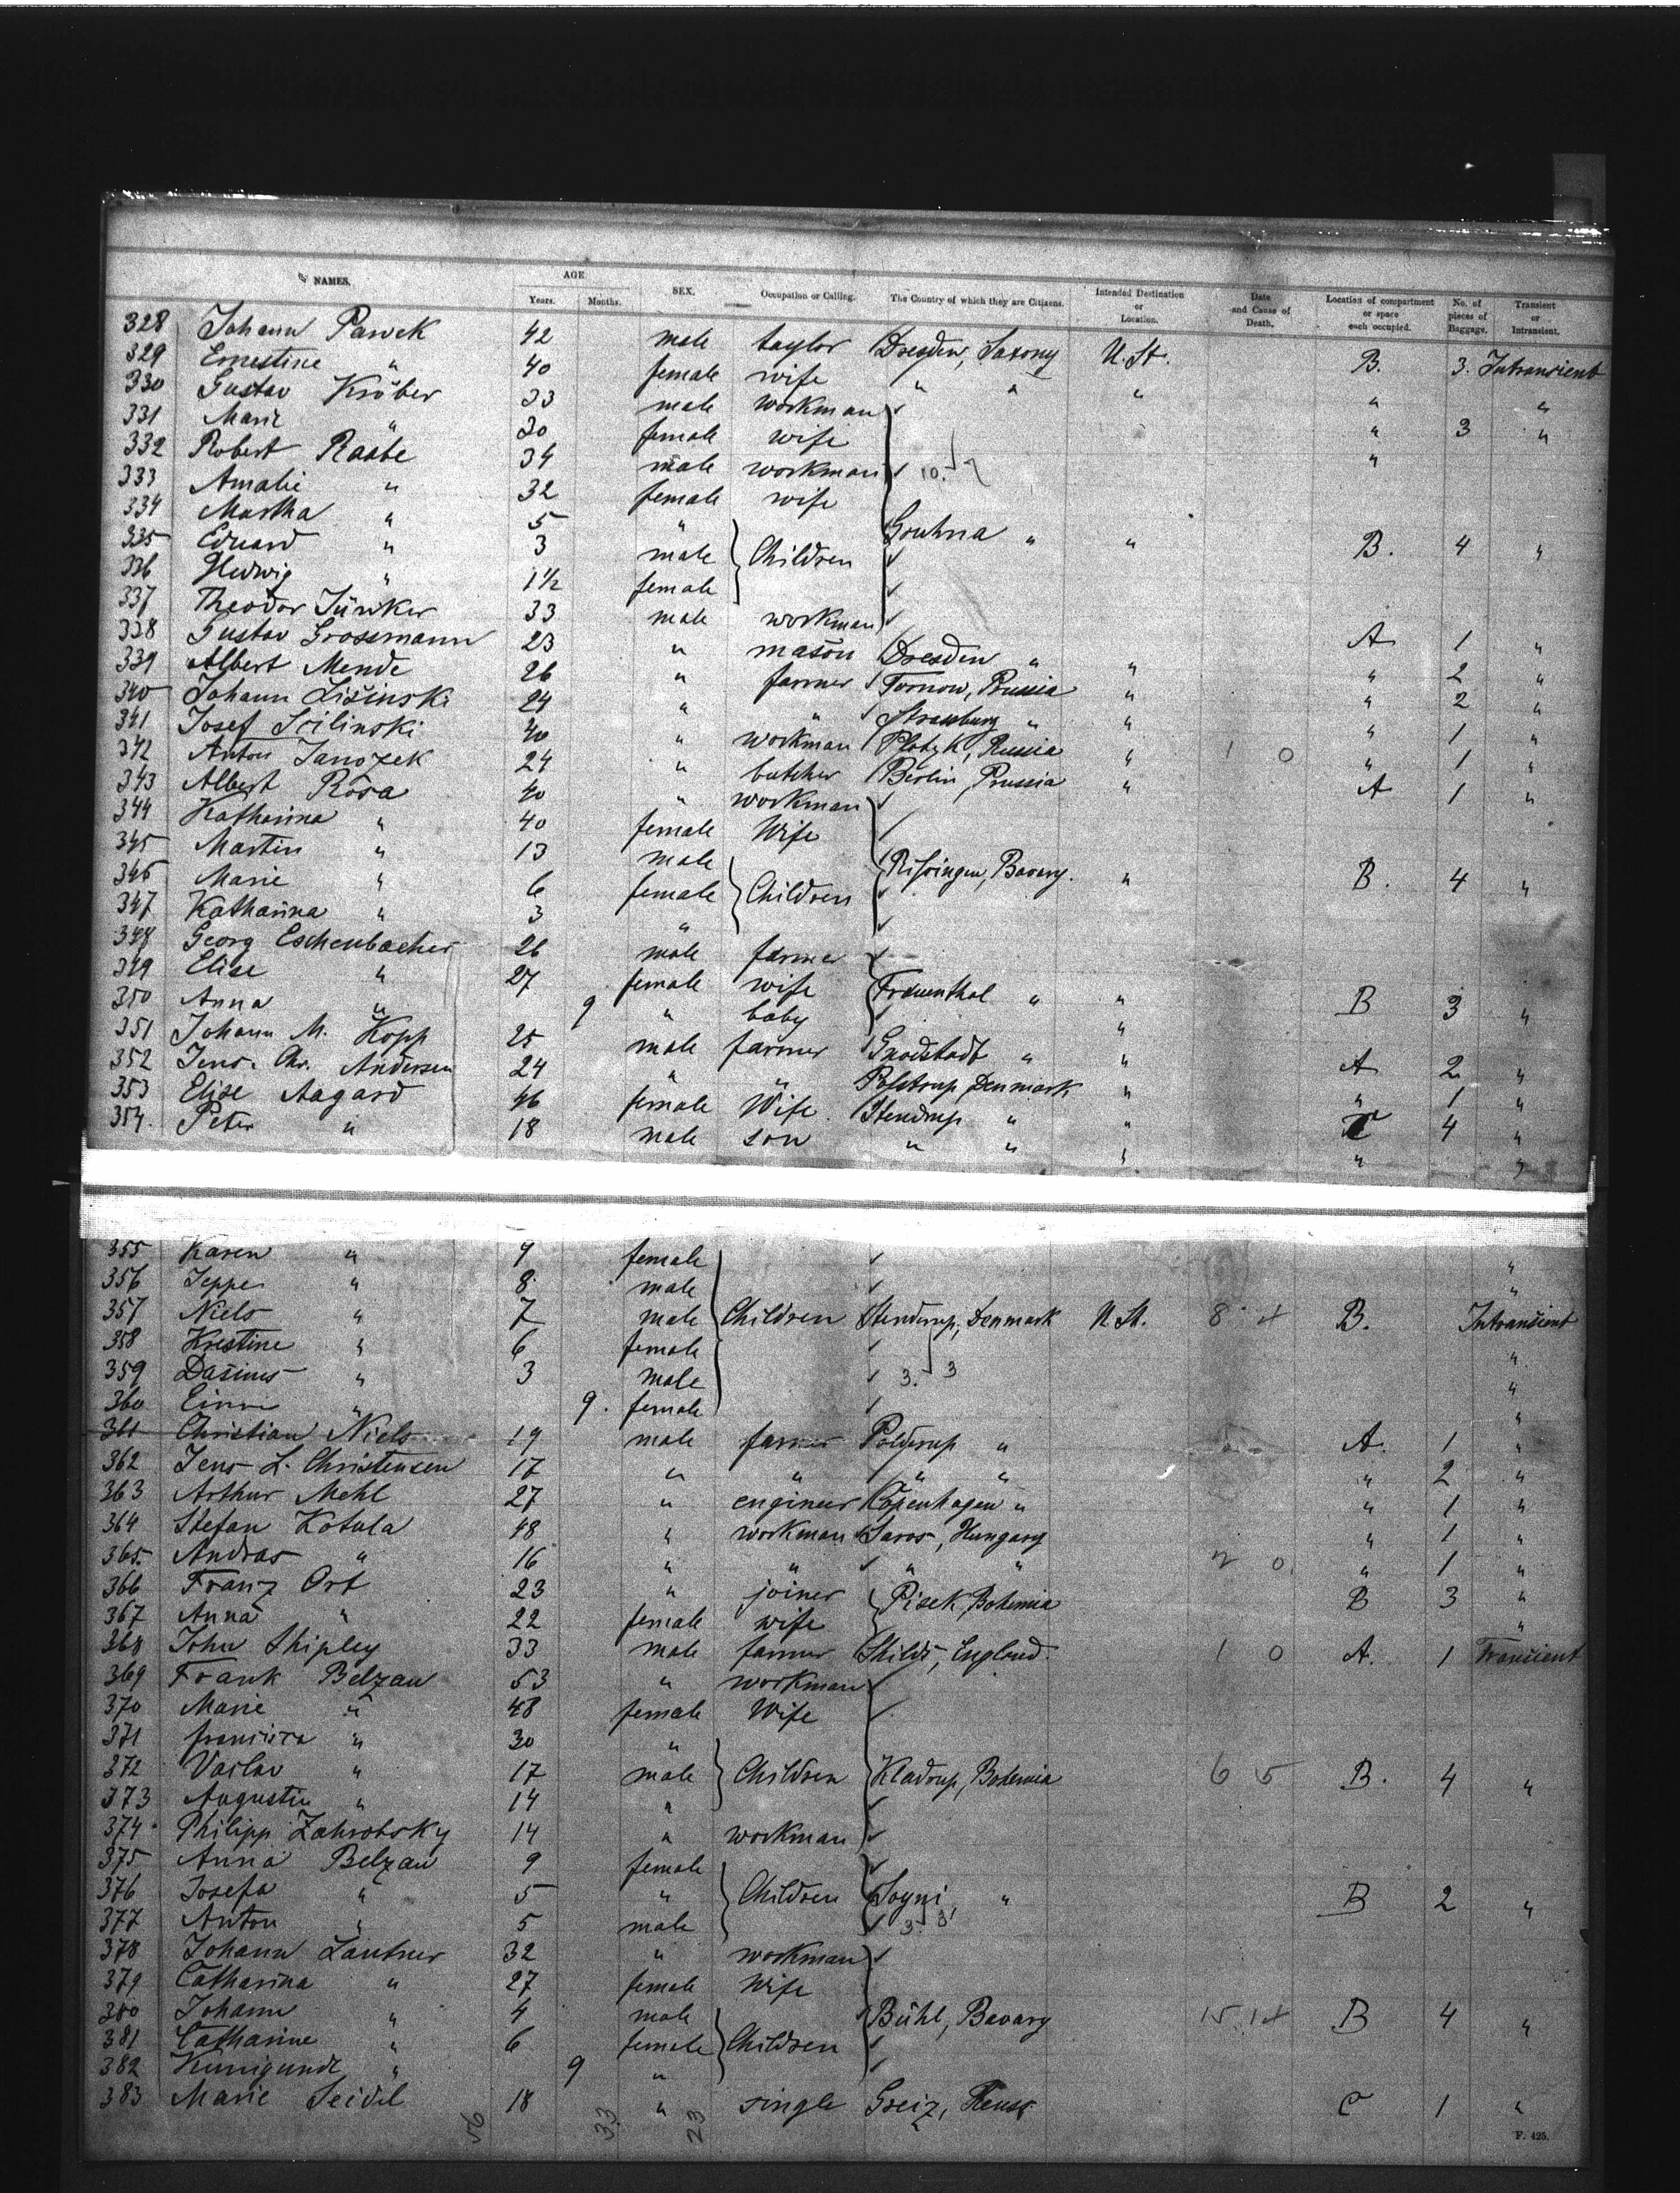 NAMES. AGE. SEX. Occupation or Calling. The Country of which they are Citizens. Intended Destination or Location. Date and Cause of Death. Location of compartment or space each occupied. No. of pieces of Baggage. Transient or Intransient.
Years. Months.
328 Johann Pawek 42 male taylor Dresden, Saxony U. St. B. 3. Intransient
329 Ernestine " 40 female wife " " " " "
330 Gustav Kröber 33 male workman " 3 "
331 Marie " 30 female wife "
332 Robert Raabe 34 male workman 10.
333 Amalie " 32 female wife
334 Martha " 5 " Gruhna " " B. 4 "
335 Eduard " 3 male Children
336 Hedwig " 1½ female
337 Theodor Jünker 33 male workman
338 Gustav Grossmann 23 " mason Dresden " " A 1 "
339 Albert Mende 26 " farmer Tornow, Prussia " " 2 "
340 Johann Lišinski 24 " " Strassburg " " " 2 "
341 Josef Scilinski 40 " workman Plotzk, Russia " 1 0 " 1 "
342 Anton Janozek 24 " butcher Berlin, Prussia " " 1 "
343 Albert Rosa 40 " workman A 1 "
344 Katharina " 40 female Wife
345 Martin " 13 male Bavary. " B. 4 "
346 Marie " 6 female Children
347 Katharina " 3 "
348 Georg Eschenbacher 26 male farmer
349 Elise " 27 female wife Frauenthal " " B 3 "
350 Anna " 9 " baby
351 Johann M. Kopp 25 male farmer Gnodstadt " " A 2 "
352 Jens. Chr. Andersen 24 " " Denmark " " 1 "
353 Elise Aagard 46 female Wife Stendrup " " C 4 "
354. Peter " 18 male son " " " " "
355 Karen " 9 female "
356 Jeppe " 8 male "
357 Niels " 7 male Children Stendrup, Denmark U. St. 8 4 B. Intransient
358 Kristine " 6 female "
359 Dasinus " 3 male 3. 3 "
360 " 9. female "
361 Christian Niels 19 male farmer " A. 1 "
362 Jens L. Christensen 17 " " " " " 2 "
363 Arthur Mehl 27 " engineer Copenhagen " " 1 "
364 Stefan Kotula 48 " workman Saros, Hungary " 1 "
365. Andras " 16 " " " " 2 0 " 1 "
366 Franz Ort 23 " joiner Pisek, Bohemia B 3 "
367 Anna " 22 female wife "
368 John Shipley 33 male farmer Shilds, England. 1 0 A. 1 Transient
369 Frank Belzan 53 " workman
370 Marie " 48 female Wife
371 Francisca " 30 "
372 Vaclav " 17 male Children Kladrup, Bohemia 6 5 B. 4 "
373 Augustin " 14 "
374 Philipp Zahrobsky 14 " workman
375 Anna Belzan 9 female
376 Josefa " 5 " Children " B 2 "
377 Anton " 5 male 3. 3
378 Johann Lautner 32 " workman
379 Catharina " 27 female Wife
380 Johann " 4 male Bühl, Bavary 15. 14 B 4 "
381 Catharine " 6 female Children
382 Kunigunde " 9 "
383 Marie Seidel 18 " single Greiz, Reuss C 1 "
56 33 23
F. 425.